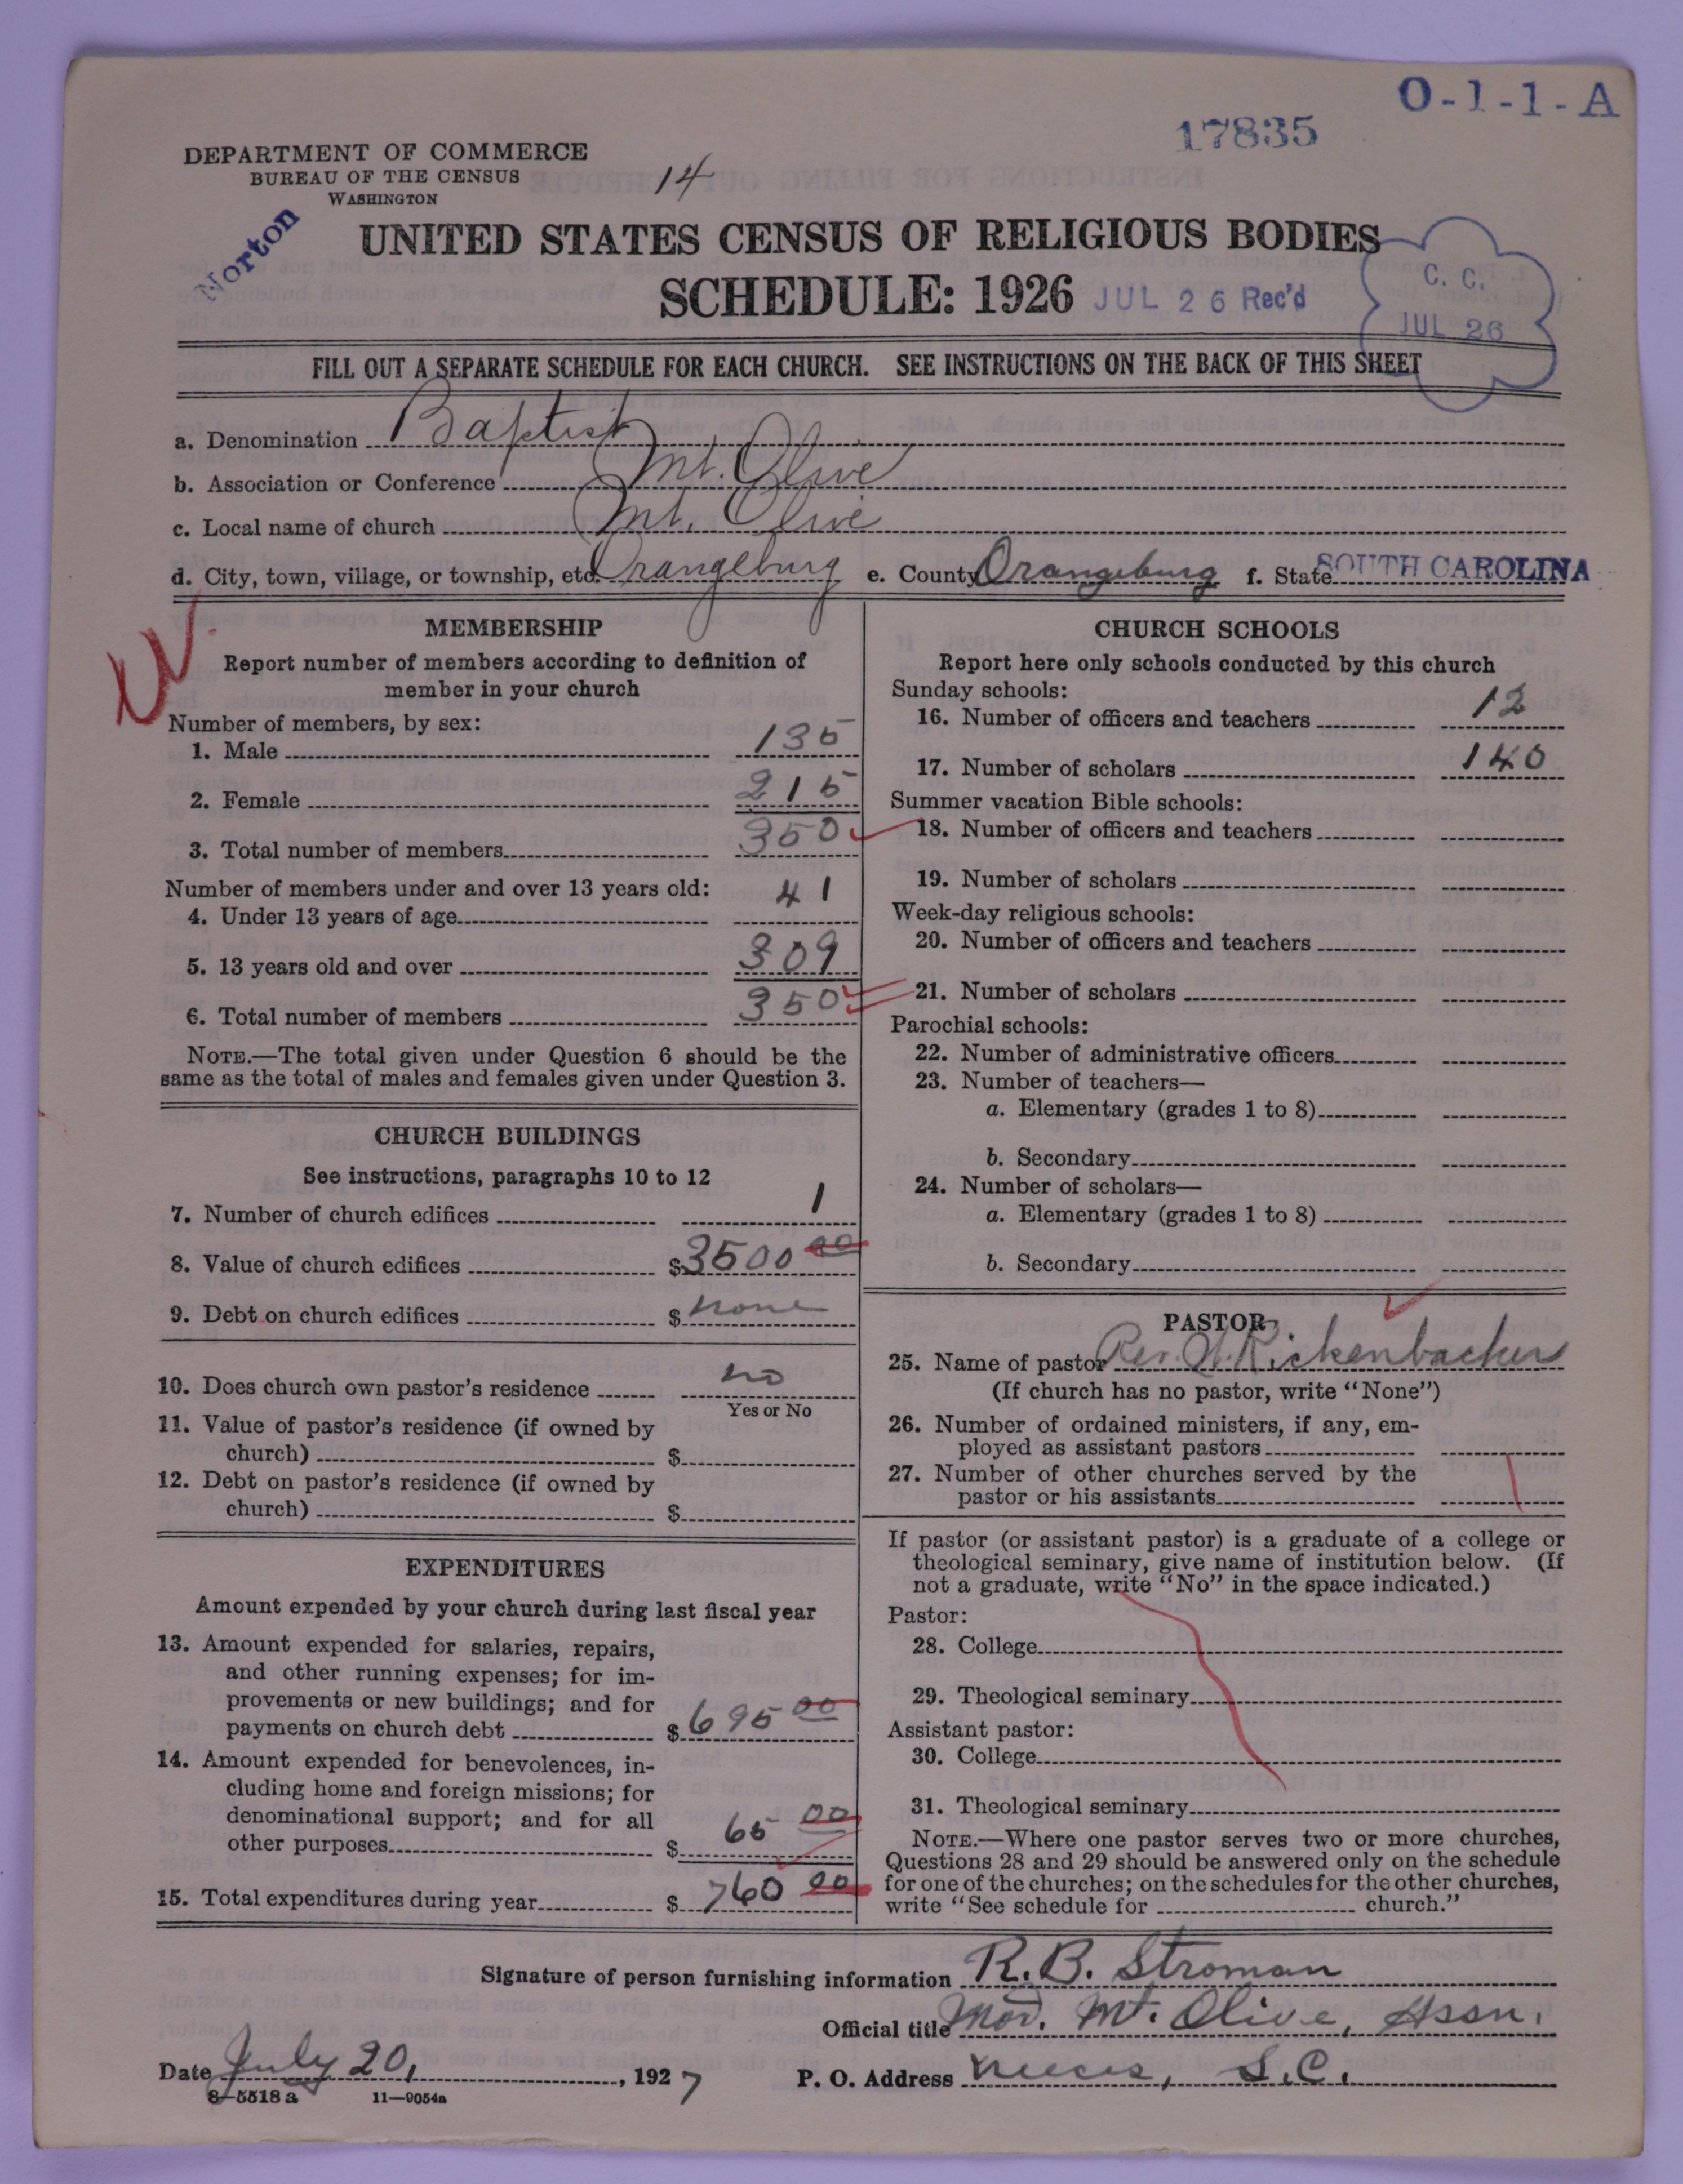 O-1-1-A
17835
DEPARTMENT OF COMMERCE
BUREAU OF THE CENSUS
WASHINGTON
14
Norton
UNITED STATES CENSUS OF RELIGIOUS BODIES
SCHEDULE: 1926 JUL 26 Rec'd
C. C.
JUL 26
FILL OUT A SEPARATE SCHEDULE FOR EACH CHURCH. SEE INSTRUCTIONS ON THE BACK OF THIS SHEET
a. Denomination Baptist
b. Association or Conference Mt. Olive
c. Local name of church Mt. Olive
d. City, town, village, or township, etc. Orangeburg e. County Orangeburg f. State SOUTH CAROLINA
MEMBERSHIP
Report number of members according to definition of
member in your church
Number of members, by sex:
1. Male 135
2. Female 215
3. Total number of members 350
Number of members under and over 13 years old:
4. Under 13 years of age 41
5. 13 years old and over 309
6. Total number of members 350
NOTE.—The total given under Question 6 should be the
same as the total of males and females given under Question 3.
CHURCH BUILDINGS
See instructions, paragraphs 10 to 12
7. Number of church edifices 1
8. Value of church edifices $3500 00
9. Debt on church edifices $ none
10. Does church own pastor's residence no
Yes or No
11. Value of pastor's residence (if owned by
church) $
12. Debt on pastor's residence (if owned by
church) $
EXPENDITURES
Amount expended by your church during last fiscal year
13. Amount expended for salaries, repairs,
and other running expenses; for im-
provements or new buildings; and for
payments on church debt $ 695 00
14. Amount expended for benevolences, in-
cluding home and foreign missions; for
denominational support; and for all
other purposes $ 65 00
15. Total expenditures during year $ 760 00
CHURCH SCHOOLS
Report here only schools conducted by this church
Sunday schools:
16. Number of officers and teachers 12
17. Number of scholars 140
Summer vacation Bible schools:
18. Number of officers and teachers
19. Number of scholars
Week-day religious schools:
20. Number of officers and teachers
21. Number of scholars
Parochial schools:
22. Number of administrative officers
23. Number of teachers—
a. Elementary (grades 1 to 8)
b. Secondary
24. Number of scholars—
a. Elementary (grades 1 to 8)
b. Secondary
PASTOR
25. Name of pastor Rev. Rickenbacker
(If church has no pastor, write "None")
26. Number of ordained ministers, if any, em-
ployed as assistant pastors
27. Number of other churches served by the
pastor or his assistants
If pastor (or assistant pastor) is a graduate of a college or
theological seminary, give name of institution below. (If
not a graduate, write "No" in the space indicated.)
Pastor:
28. College
29. Theological seminary
Assistant pastor:
30. College
31. Theological seminary
NOTE.—Where one pastor serves two or more churches,
Questions 28 and 29 should be answered only on the schedule
for one of the churches; on the schedules for the other churches,
write "See schedule for church."
Signature of person furnishing information R. B. Stroman
Official title Mod. Mt. Olive, Assn.
Date July 20, 1927 P. O. Address Neeces, S.C.
8-5518 a 11—9054a